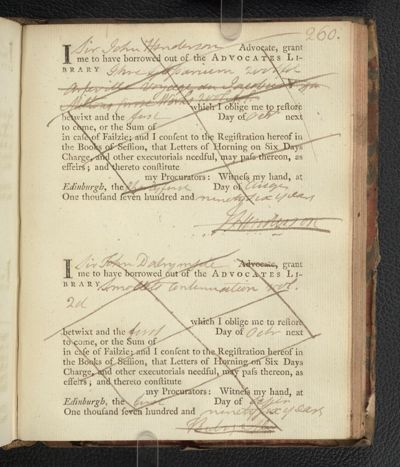 260.
I Sir John Henderson Advocate, grant
me to have borrowed out of the ADVOCATES LI-
BRARY
which I oblige me to restore
betwixt and the first Day of Octr next
to come, or the Sum of
in case of Failzie; and I consent to the Registration hereof in
the Books of Session, that Letters of Horning on Six Days
Charge, and other executorials needful, may pass thereon, as
effeirs; and thereto constitute
my Procurators: Witness my hand, at
Edinburgh, the Day of
One thousand seven hundred and ninety six years
J Henderson
I Sir John Dalrymple Advocate, grant
me to have borrowed out of the ADVOCATES LI-
BRARY Smolletts Continuation vol.
2d
which I oblige me to restore
betwixt and the first Day of Octr next
to come, or the Sum of
in case of Failzie; and I consent to the Registration hereof in
the Books of Session, that Letters of Horning on Six Days
Charge, and other executorials needful, may pass thereon, as
effeirs; and thereto constitute
my Procurators: Witness my hand, at
Edinburgh, the Day of
One thousand seven hundred and ninety six years